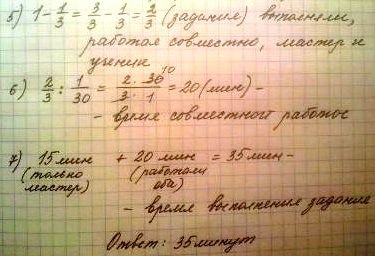 5) 1 - 1/3 = 3/3 - 1/3 = 2/3 (задания) выполнили,
работая совместно, мастер и
ученик
6) 2/3 : 1/30 = 2 · 30 10 / 3 · 1 = 20 (мин) -
- время совместной работы
7) 15 мин + 20 мин = 35 мин -
(только мастер) (работали оба)
- время выполнения задание
Ответ: 35 минут